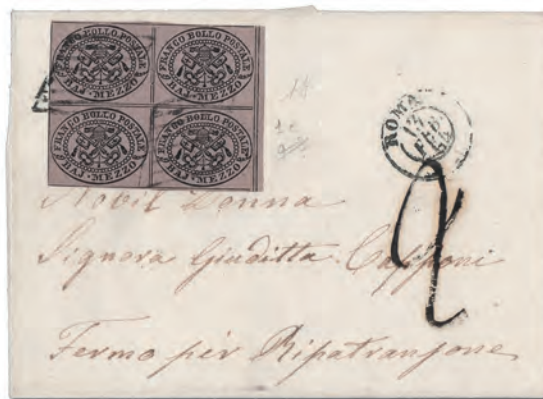 FRANCO BOLLO POSTALE
BAJ·MEZZO
FRANCO BOLLO POSTALE
BAJ·MEZZO
FRANCO BOLLO POSTALE
BAJ·MEZZO
FRANCO BOLLO POSTALE
BAJ·MEZZO
ROMA
FEB
2
Nobil Donna
Signora Giuditta Capponi
Fermo per Ripatransone